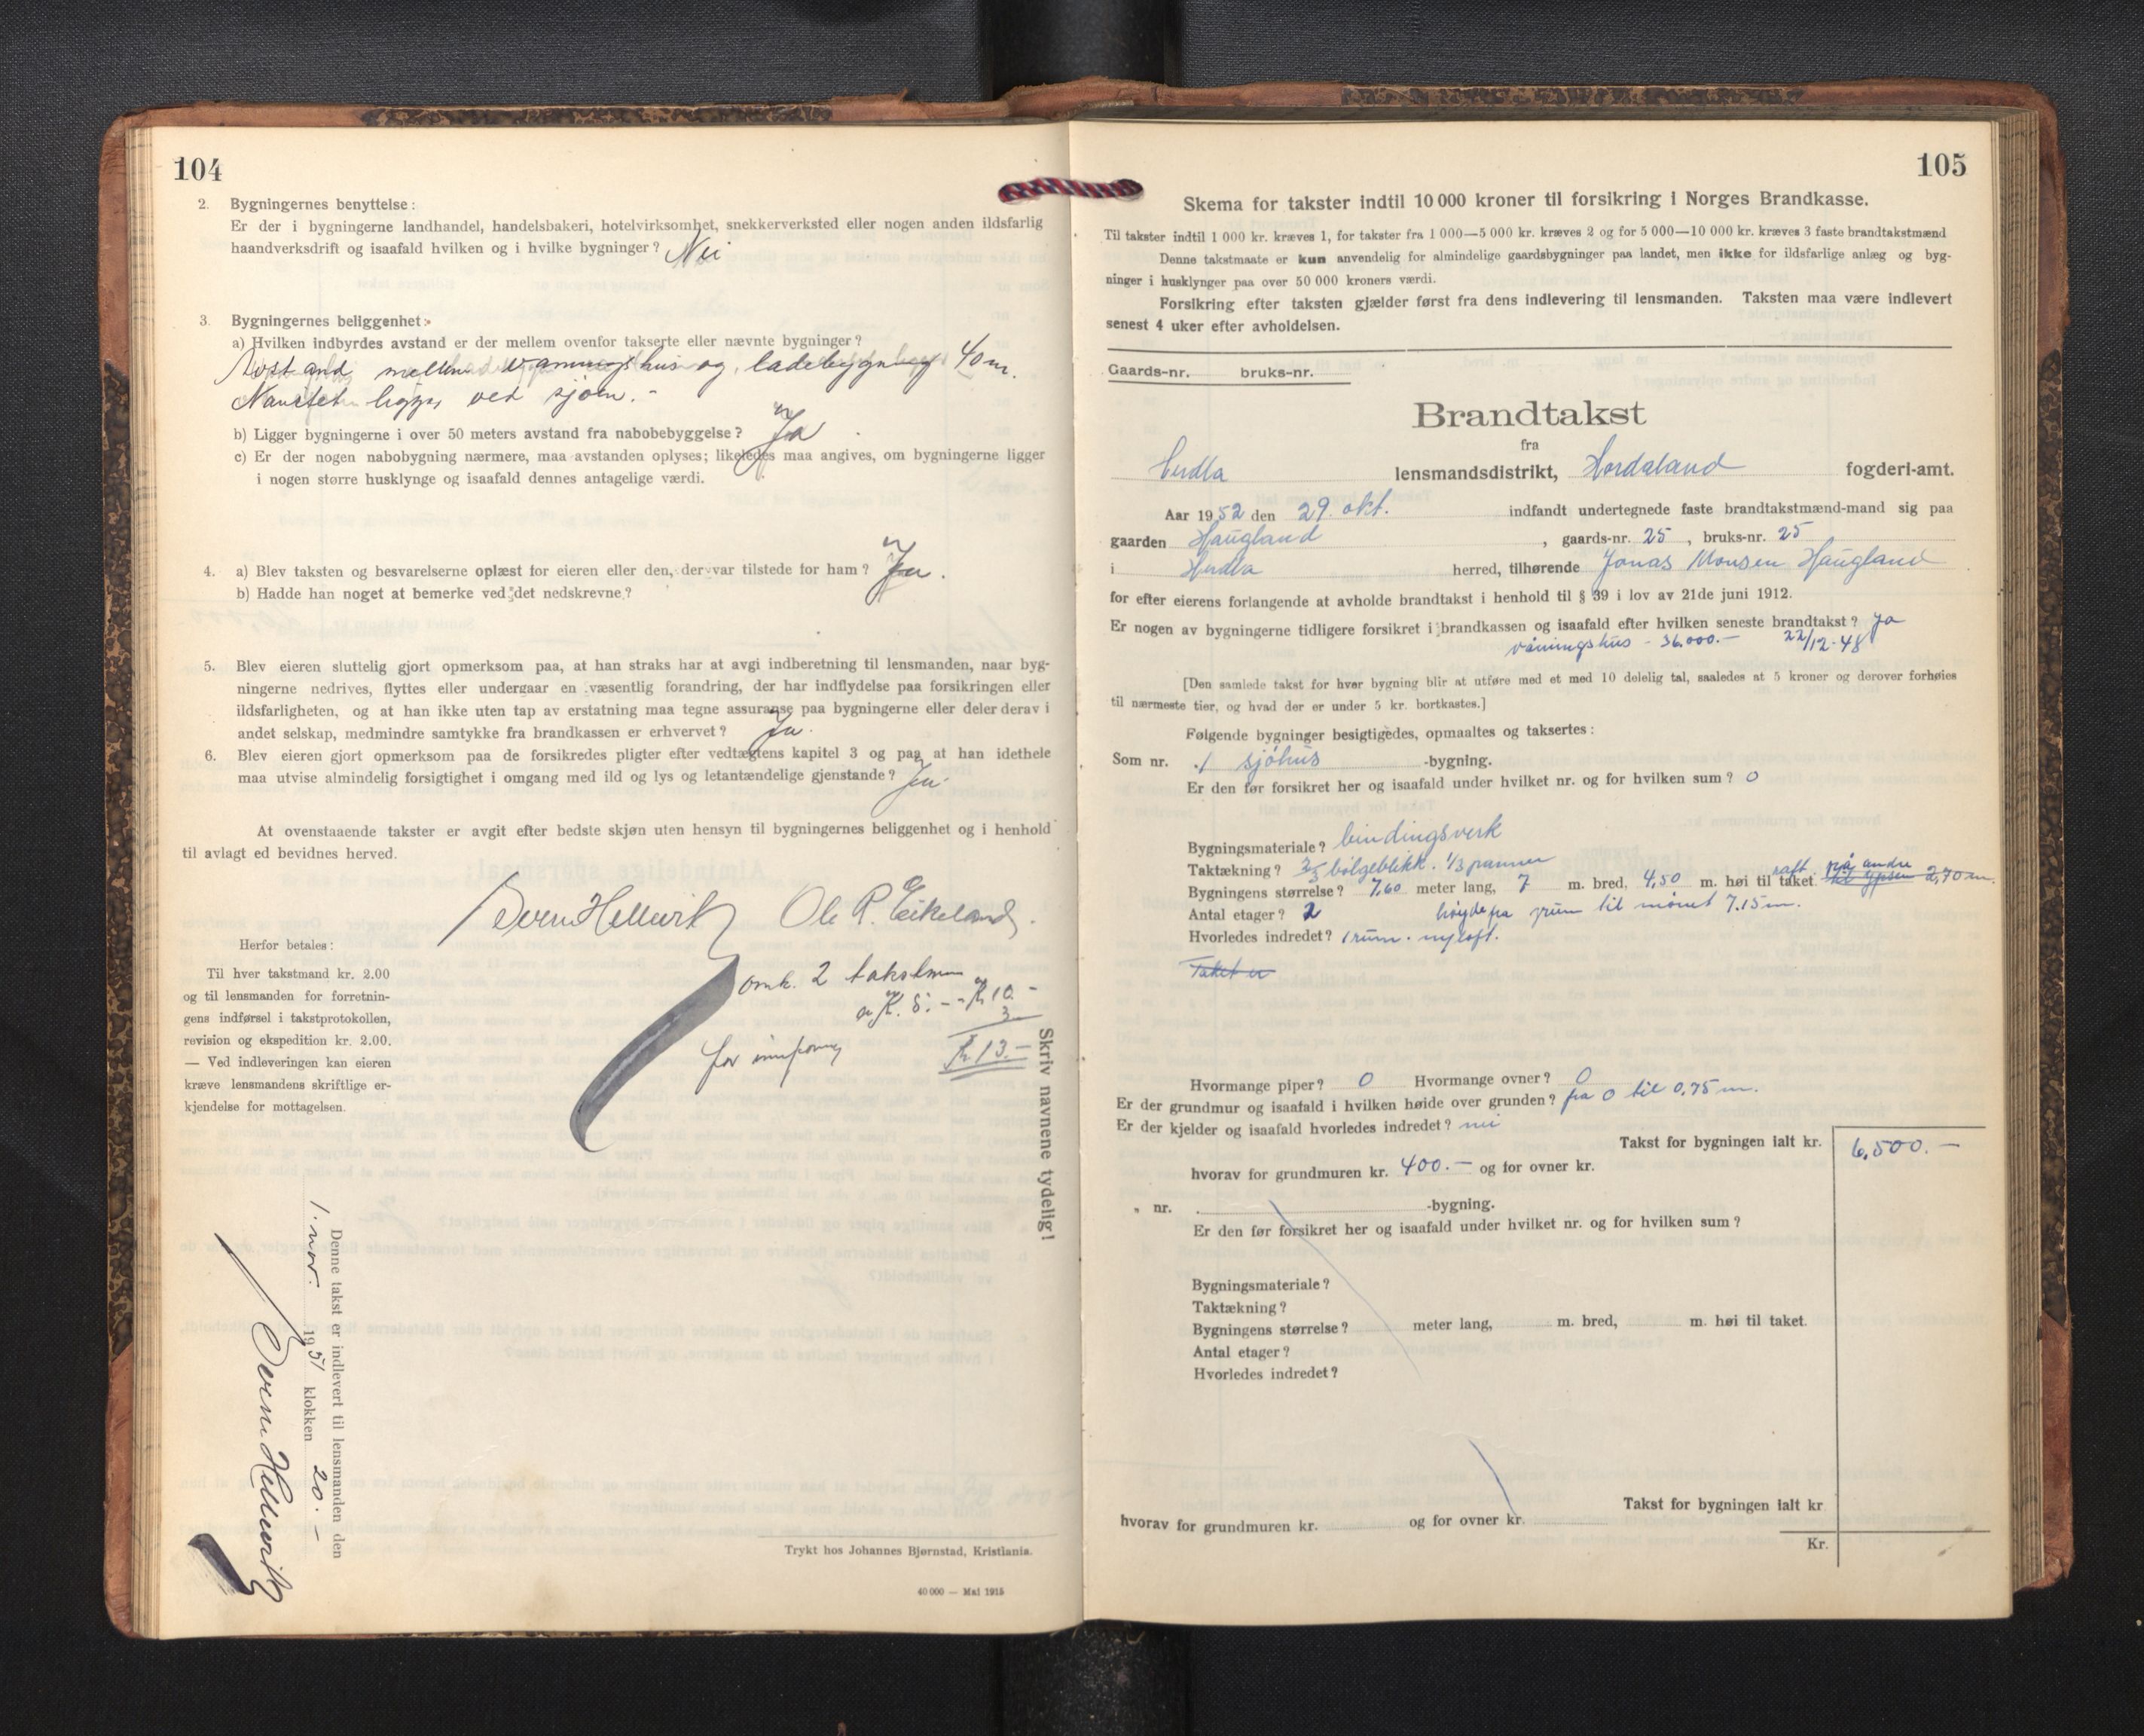 104
2. Bygningernes benyttelse:
Er der i bygningerne landhandel, handelsbakeri, hotelvirksomhet, snekkerverksted eller nogen anden ildsfarlig
haandverksdrift og isaafald hvilken og i hvilke bygninger? Nei
3. Bygningernes beliggenhet:
a) Hvilken indbyrdes avstand er der mellem ovenfor takserte eller nævnte bygninger?
Avstand mellem vaaningshus og ladebygning 40 m.
Naustet ligger ved sjøen.-
b) Ligger bygningerne i over 50 meters avstand fra nabobebyggelse? Ja
c) Er der nogen nabobygning nærmere, maa avstanden oplyses; likeledes maa angives, om bygningerne ligger
i nogen større husklynge og isaafald dennes antagelige værdi.
4. a) Blev taksten og besvarelserne oplæst for eieren eller den, der var tilstede for ham? Ja.
b) Hadde han noget at bemerke ved det nedskrevne?
5. Blev eieren sluttelig gjort opmerksom paa, at han straks har at avgi indberetning til lensmanden, naar byg-
ningerne nedrives, flyttes eller undergaar en væsentlig forandring, der har indflydelse paa forsikringen eller
ildsfarligheten, og at han ikke uten tap av erstatning maa tegne assuranse paa bygningerne eller deler derav i
andet selskap, medmindre samtykke fra brandkassen er erhvervet? Ja.
6. Blev eieren gjort opmerksom paa de forsikredes pligter efter vedtægtens kapitel 3 og paa at han idethele
maa utvise almindelig forsigtighet i omgang med ild og lys og letantændelige gjenstande? Ja
At ovenstaaende takster er avgit efter bedste skjøn uten hensyn til bygningernes beliggenhet og i henhold
til avlagt ed bevidnes herved.
Svern Hellevik Ole R. Eikeland.
Herfor betales:
Til hver takstmand kr. 2.00
og til lensmanden for forretnin-
gens indførsel i takstprotokollen,
revision og ekspedition kr. 2.00.
— Ved indleveringen kan eieren
kræve lensmandens skriftlige er-
kjendelse for mottagelsen.
omk. 2 takstmen
a K. 5.- - Kr 10.-
for innføring 3
Kr 13.-
Skriv navnene tydelig!
Denne takst er indlevert til lensmanden den
1. nov. 1951 klokken 20.-
Svern Hellevik
Trykt hos Johannes Bjørnstad, Kristiania.
40 000 — Mai 1915
105
Skema for takster indtil 10 000 kroner til forsikring i Norges Brandkasse.
Til takster indtil 1 000 kr. kræves 1, for takster fra 1 000—5 000 kr. kræves 2 og for 5 000—10 000 kr. kræves 3 faste brandtakstmænd
Denne takstmaate er kun anvendelig for almindelige gaardsbygninger paa landet, men ikke for ildsfarlige anlæg og byg-
ninger i husklynger paa over 50 000 kroners værdi.
Forsikring efter taksten gjælder først fra dens indlevering til lensmanden. Taksten maa være indlevert
senest 4 uker efter avholdelsen.
Gaards-nr. bruks-nr.
Brandtakst
fra
Herdla lensmandsdistrikt, Hordaland fogderi-amt.
Aar 1952 den 29. okt. indfandt undertegnede faste brandtakstmænd-mand sig paa
gaarden Haugland, gaards-nr. 25, bruks-nr. 25
i Herdla herred, tilhørende Jonas Monsen Haugland
for efter eierens forlangende at avholde brandtakst i henhold til § 39 i lov av 21de juni 1912.
Er nogen av bygningerne tidligere forsikret i brandkassen og isaafald efter hvilken seneste brandtakst? Ja
våningshus - 36.000.- 22/12-48
[Den samlede takst for hver bygning blir at utføre med et med 10 delelig tal, saaledes at 5 kroner og derover forhøies
til nærmeste tier, og hvad der er under 5 kr. bortkastes.]
Følgende bygninger besigtigedes, opmaaltes og taksertes:
Som nr. 1 sjøhus -bygning.
Er den før forsikret her og isaafald under hvilket nr. og for hvilken sum? 0
Bygningsmateriale? bindingsverk
Taktækning? 2/3 bølgeblikk. 1/3 panner
Bygningens størrelse? 7,60 meter lang, 7 m. bred, 4,50 m. høi til taket. raft. på andre 2,70 m.
Antal etager? 2 høyde fra grunn til mønet 7.15 m.
Hvorledes indredet? 1 rum. og loft.
Taket er
Hvormange piper? 0 Hvormange ovner? 0
Er der grundmur og isaafald i hvilken høide over grunden? fra 0 til 0,75 m.
Er der kjelder og isaafald hvorledes indredet? nei
Takst for bygningen ialt kr. 6.500.-
hvorav for grundmuren kr. 400.- og for ovner kr.
" nr. -bygning.
Er den før forsikret her og isaafald under hvilket nr. og for hvilken sum?
Bygningsmateriale?
Taktækning?
Bygningens størrelse? meter lang, m. bred, m. høi til taket.
Antal etager?
Hvorledes indredet?
Takst for bygningen ialt kr
hvorav for grundmuren kr. og for ovner kr.
Kr.